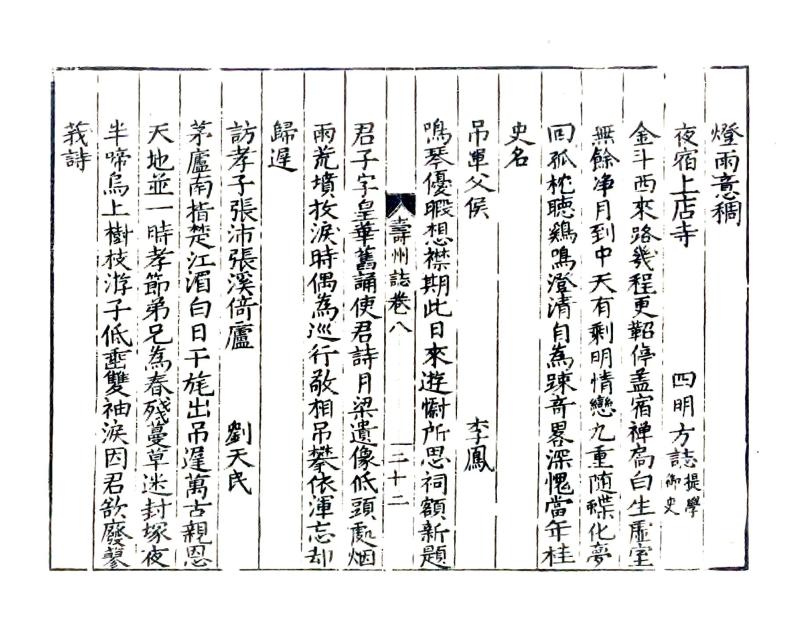 燈雨意稠
夜宿上店寺 四明方誌提學御史
金斗西來路幾程更鞀停盖宿禅扃白生虛室
無餘净月到中天有剩明情戀九重随蝶化夢
回孤枕聴鷄鳴澄清自為踈竒畧深愧當年桂
史名
吊單父侯 李鳳
鳴琴優暇想襟期此日來遊慰所思祠額新題
壽州誌卷八 二十二
君子字皇華舊誦使君詩月梁遺像低頭處烟
雨荒墳抆淚時偶為巡行敬相吊攀依渾忘却
歸遲
訪孝子張沛張溪倚廬 劉天民
茅廬南指楚江湄白日干旄出吊遲萬古親恩
天地並一時孝節弟兄為春殘蔓草迷封塚夜
半啼烏上樹枝游子低垂雙袖淚因君欲廢蓼
莪詩